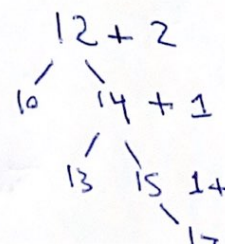 12 + 2
10 14 + 1
13 15 1+